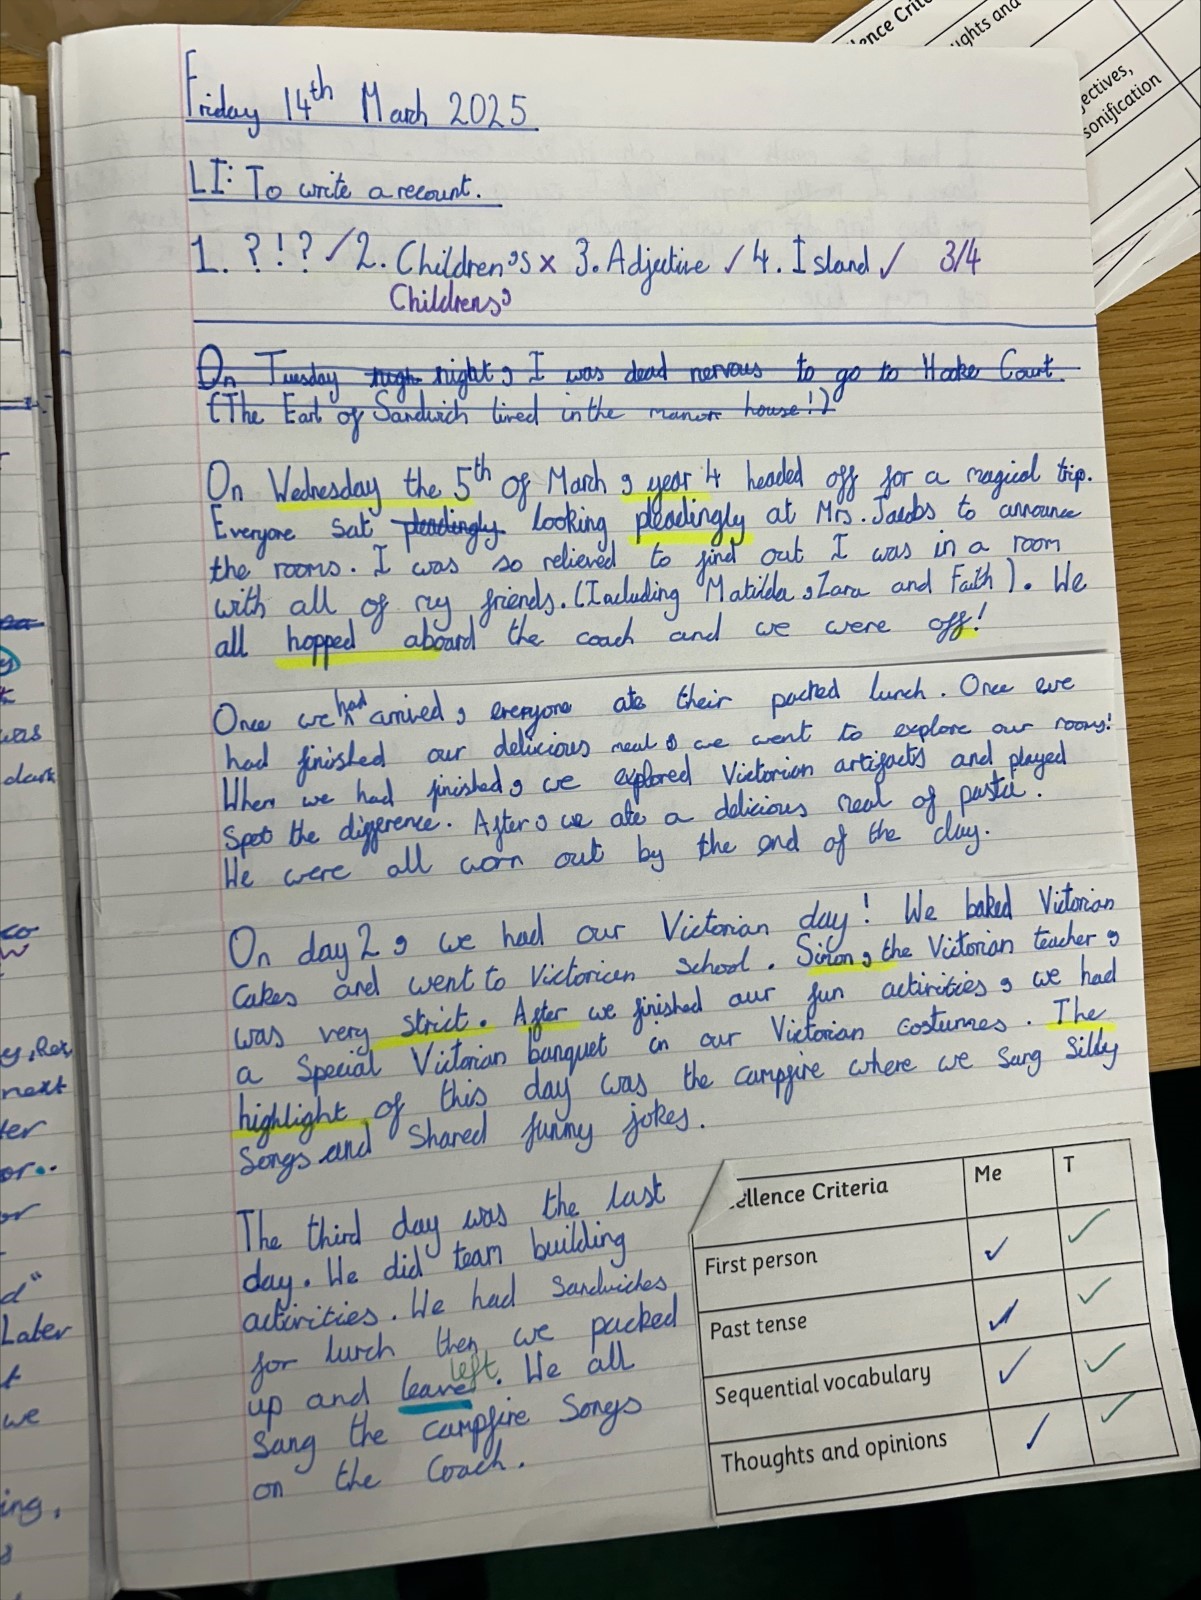 Friday 14th March 2025
LI: To write a recount.
1. ?!? ✓ 2. Children's x 3. Adjective ✓ 4. Island ✓ 3/4
Childrens'
On Tuesday nigh night, I was dead nervous to go to Hooke Court.
(The Earl of Sandwich lived in the manor house!)
On Wednesday the 5th of March, year 4 headed off for a magical trip.
Everyone sat pleadingly looking pleadingly at Mrs. Jacobs to announce
the rooms. I was so relieved to find out I was in a room
with all of my friends. (Including Matilda, Zara and Faith). We
all hopped aboard the coach and we were off!
Once we had arrived, everyone ate their packed lunch. Once we
had finished our delicious meal, we went to explore our rooms!
When we had finished, we explored Victorian artifacts and played
Spot the difference. After, we ate a delicious meal of pasta.
We were all worn out by the end of the day.
On day 2, we had our Victorian day! We baked Victorian
Cakes and went to Victorian School. Simon, the Victorian teacher,
was very strict. After we finished our fun activities, we had
a Special Victorian banquet in our Victorian costumes. The
highlight of this day was the campfire where we sang silly
Songs and Shared funny jokes.
The third day was the last
day. We did team building
activities. We had Sandwiches
for lunch then we packed
up and leave left. We all
Sang the campfire Songs
on the Coach.
ellence Criteria Me T
First person ✓ ✓
Past tense ✓ ✓
Sequential vocabulary ✓ ✓
Thoughts and opinions ✓ ✓
lence Crite
ughts and
jectives,
sonification
was
dark
y, Rex
next
ter
or..
or
d"
Later
t
we
ing,